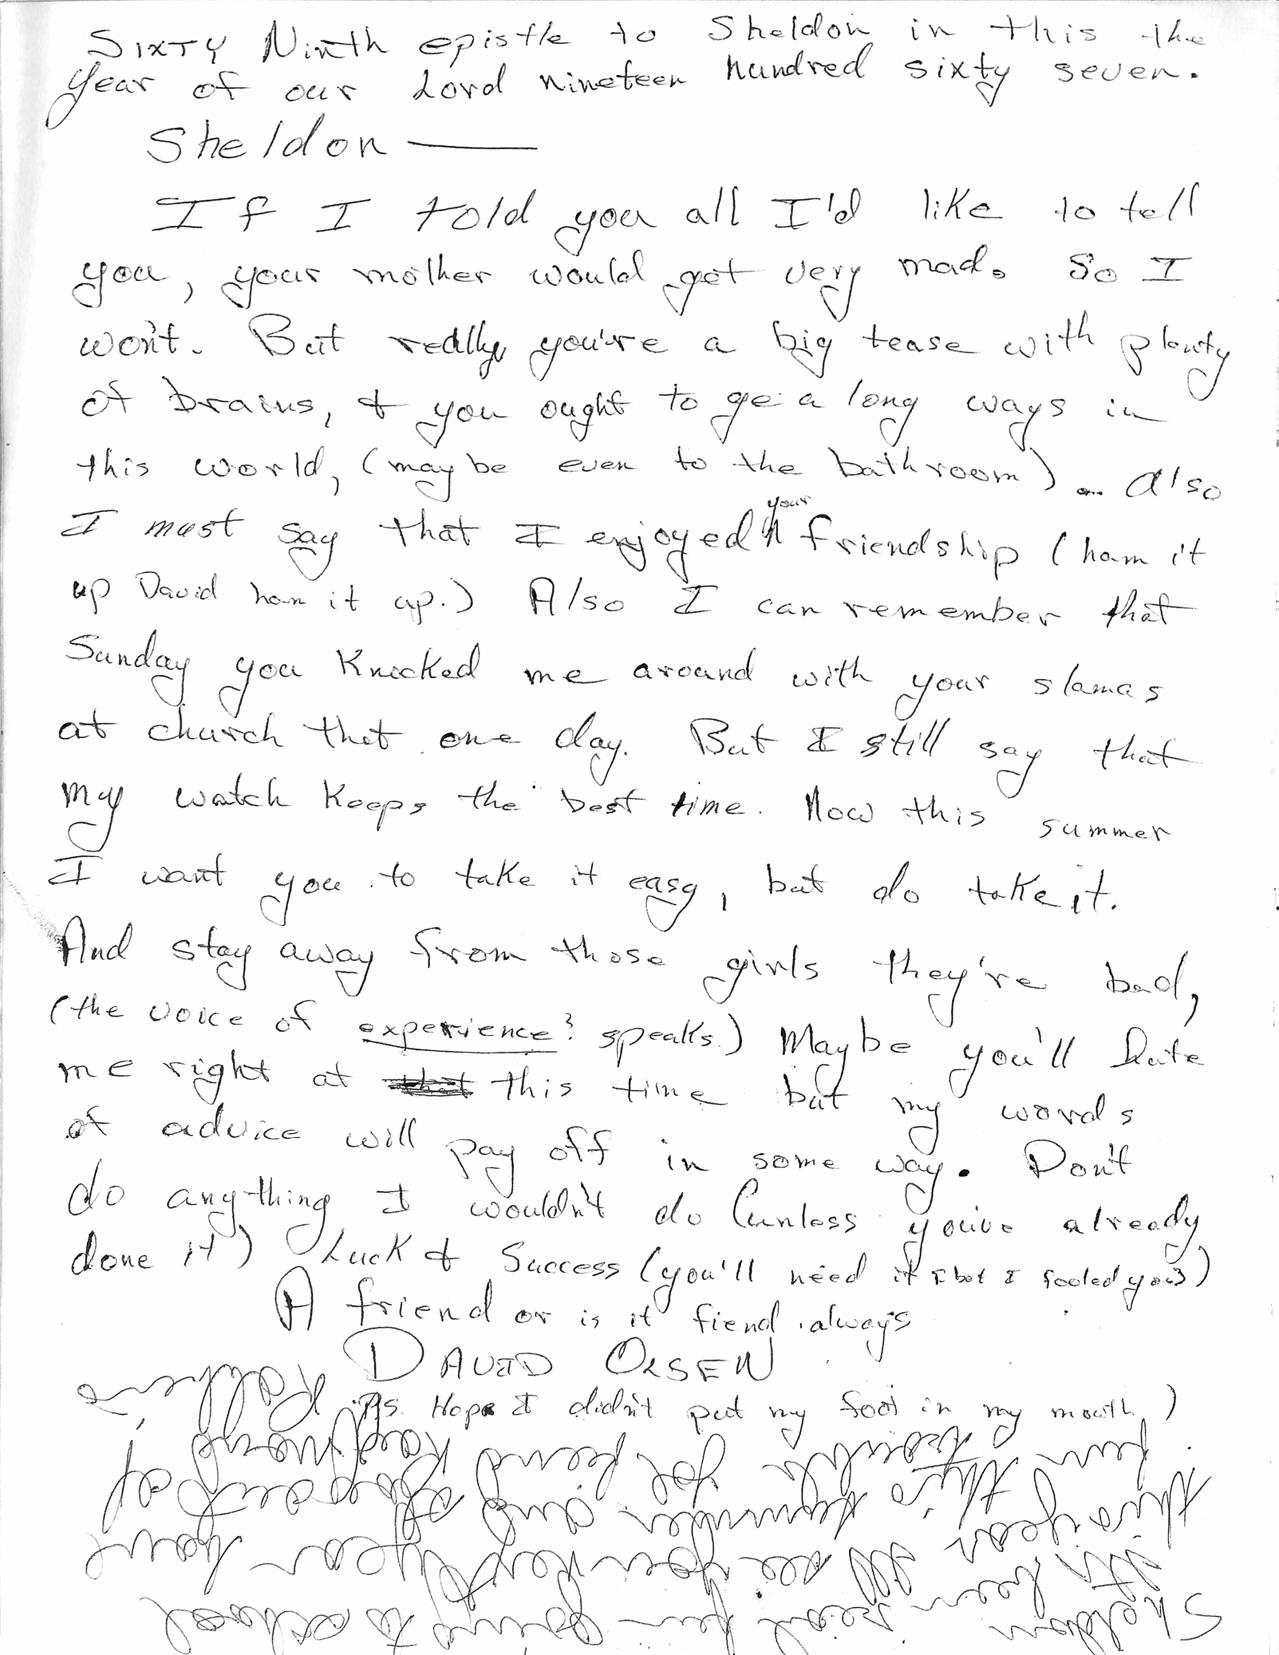 Sixty Ninth epistle to Sheldon in this the
year of our Lord nineteen hundred sixty seven.
Sheldon —
If I told you all I'd like to tell
you, your mother would get very mad. So I
won't. But really you're a big tease with plenty
of brains, & you ought to go a long ways in
this world, (maybe even to the bathroom) Also
I must say that I enjoyed your friendship (ham it
up David ham it up.) Also I can remember that
Sunday you knocked me around with your slamas
at church that one day. But I still say that
my watch keeps the best time. Now this summer
I want you to take it easy, but do take it.
And stay away from those girls they're bad,
(the voice of experience? speaks.) Maybe you'll hate
me right at this time but my words
of advice will pay off in some way. Don't
do anything I wouldn't do (unless you've already
done it) Luck & Success (you'll need it I bet I fooled you)
A friend or is it fiend always
DAVID OLSEN
P.S. Hope I didn't put my foot in my mouth)
Sheldon
it's been real fun going to school
this year. I'll see you next year have
fun this summer and stay out of
trouble